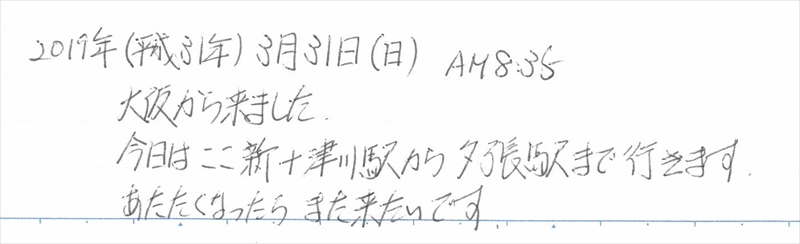 2019年(平成31年) 3月31日(日) AM8:35
大阪から来ました.
今日はここ新十津川駅から夕張駅まで行きます.
あたたくなったらまた来たいです